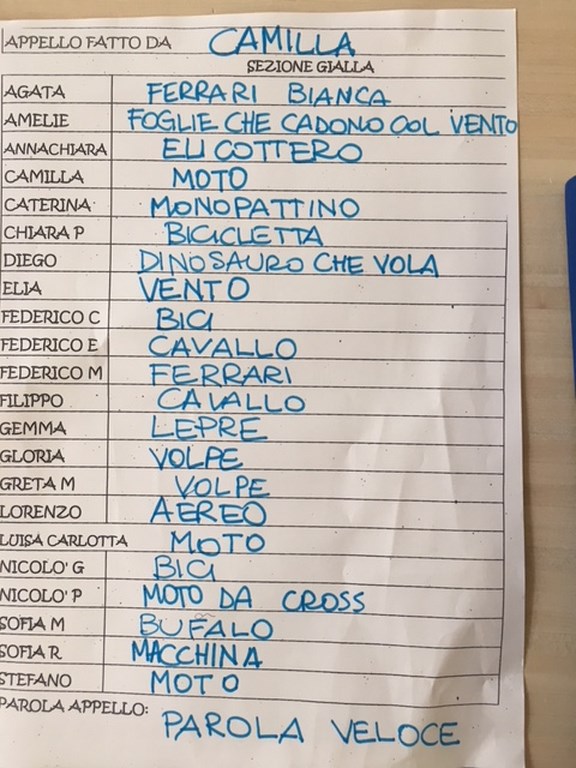 APPELLO FATTO DA CAMILLA
SEZIONE GIALLA
AGATA FERRARI BIANCA
AMELIE FOGLIE CHE CADONO COL VENTO
ANNACHIARA ELICOTTERO
CAMILLA MOTO
CATERINA MONOPATTINO
CHIARA P BICICLETTA
DIEGO DINOSAURO CHE VOLA
ELIA VENTO
FEDERICO C BICI
FEDERICO E CAVALLO
FEDERICO M FERRARI
FILIPPO CAVALLO
GEMMA LEPRE
GLORIA VOLPE
GRETA M VOLPE
LORENZO AEREO
LUISA CARLOTTA MOTO
NICOLO' G BICI
NICOLO' P MOTO DA CROSS
SOFIA M BUFALO
SOFIA R MACCHINA
STEFANO MOTO
PAROLA APPELLO: PAROLA VELOCE